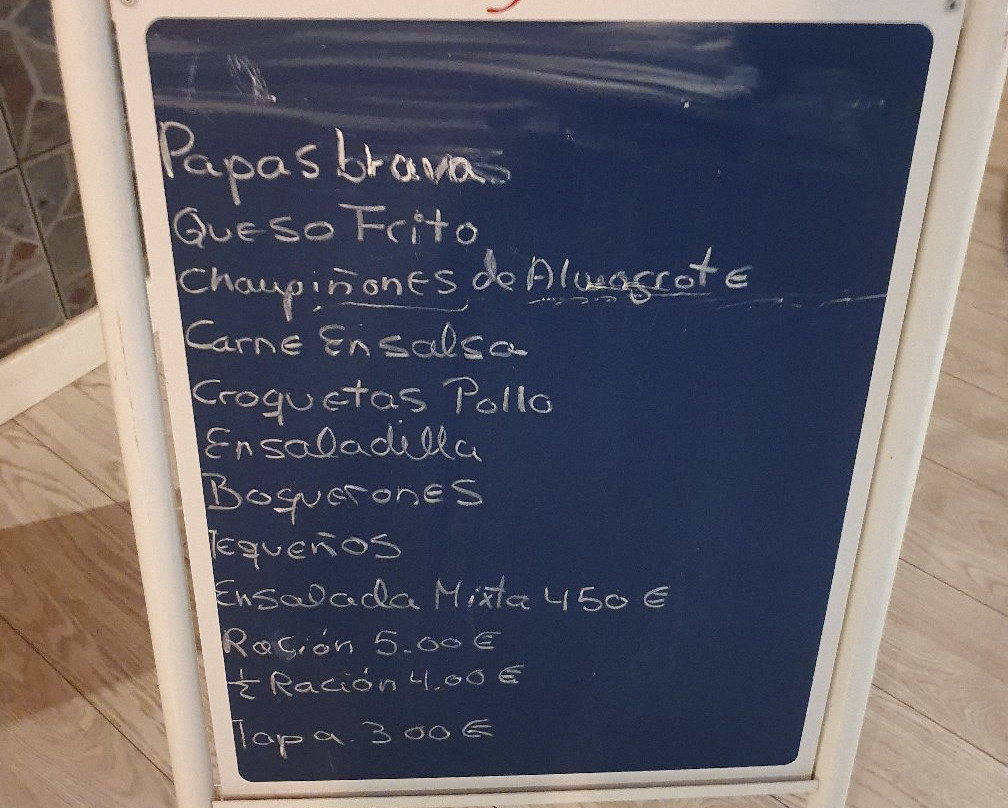 Papas bravas
Queso Frito
Chaupiñones de Almogrote
Carne En salsa
Croquetas Pollo
Ensaladilla
Boquerones
Tequeños
Ensalada Mixta 450 €
Ración 5.00 €
½ Ración 4.00 €
Tapa. 300 €